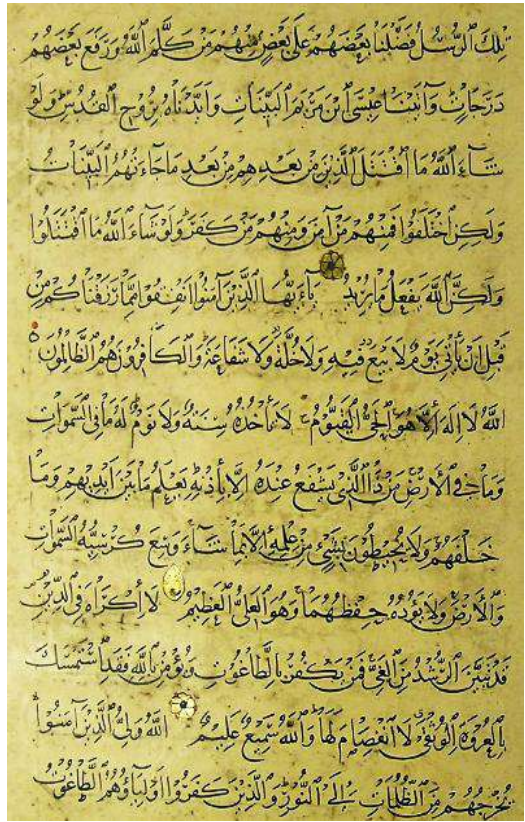 تِلْكَ ٱلرُّسُلُ فَضَّلْنَا بَعْضَهُمْ عَلَىٰ بَعْضٍ مِنْهُمْ مَنْ كَلَّمَ ٱللَّهُ وَرَفَعَ بَعْضَهُمْ
دَرَجَاتٍ وَآتَيْنَا عِيسَى ٱبْنَ مَرْيَمَ ٱلْبَيِّنَاتِ وَأَيَّدْنَاهُ بِرُوحِ ٱلْقُدُسِ وَلَوْ
شَاءَ ٱللَّهُ مَا ٱقْتَتَلَ ٱلَّذِينَ مِنْ بَعْدِهِمْ مِنْ بَعْدِ مَا جَاءَتْهُمُ ٱلْبَيِّنَاتُ
وَلَكِنِ ٱخْتَلَفُوا فَمِنْهُمْ مَنْ آمَنَ وَمِنْهُمْ مَنْ كَفَرَ وَلَوْ شَاءَ ٱللَّهُ مَا ٱقْتَتَلُوا
وَلَكِنَّ ٱللَّهَ يَفْعَلُ مَا يُرِيدُ يَاءَيُّهَا ٱلَّذِينَ آمَنُوا أَنْفِقُوا مِمَّا رَزَقْنَاكُمْ مِنْ
قَبْلِ أَنْ يَأْتِيَ يَوْمٌ لَا بَيْعٌ فِيهِ وَلَا خُلَّةٌ وَلَا شَفَاعَةٌ وَٱلْكَافِرُونَ هُمُ ٱلظَّالِمُونَ
ٱللَّهُ لَا إِلَهَ إِلَّا هُوَ ٱلْحَيُّ ٱلْقَيُّومُ لَا تَأْخُذُهُ سِنَةٌ وَلَا نَوْمٌ لَهُ مَا فِي ٱلسَّمَوَاتِ
وَمَا فِي ٱلْأَرْضِ مَنْ ذَا ٱلَّذِي يَشْفَعُ عِنْدَهُ إِلَّا بِإِذْنِهِ يَعْلَمُ مَا بَيْنَ أَيْدِيهِمْ وَمَا
خَلْفَهُمْ وَلَا يُحِيطُونَ بِشَيْءٍ مِنْ عِلْمِهِ إِلَّا بِمَا شَاءَ وَسِعَ كُرْسِيُّهُ ٱلسَّمَوَاتِ
وَٱلْأَرْضَ وَلَا يَؤُدُهُ حِفْظُهُمَا وَهُوَ ٱلْعَلِيُّ ٱلْعَظِيمُ لَا إِكْرَاهَ فِي ٱلدِّينِ
قَدْ تَبَيَّنَ ٱلرُّشْدُ مِنَ ٱلْغَيِّ فَمَنْ يَكْفُرْ بِٱلطَّاغُوتِ وَيُؤْمِنْ بِٱللَّهِ فَقَدِ ٱسْتَمْسَكَ
بِٱلْعُرْوَةِ ٱلْوُثْقَىٰ لَا ٱنْفِصَامَ لَهَا وَٱللَّهُ سَمِيعٌ عَلِيمٌ ٱللَّهُ وَلِيُّ ٱلَّذِينَ آمَنُوا
يُخْرِجُهُمْ مِنَ ٱلظُّلُمَاتِ إِلَى ٱلنُّورِ وَٱلَّذِينَ كَفَرُوا أَوْلِيَاؤُهُمُ ٱلطَّاغُوتُ